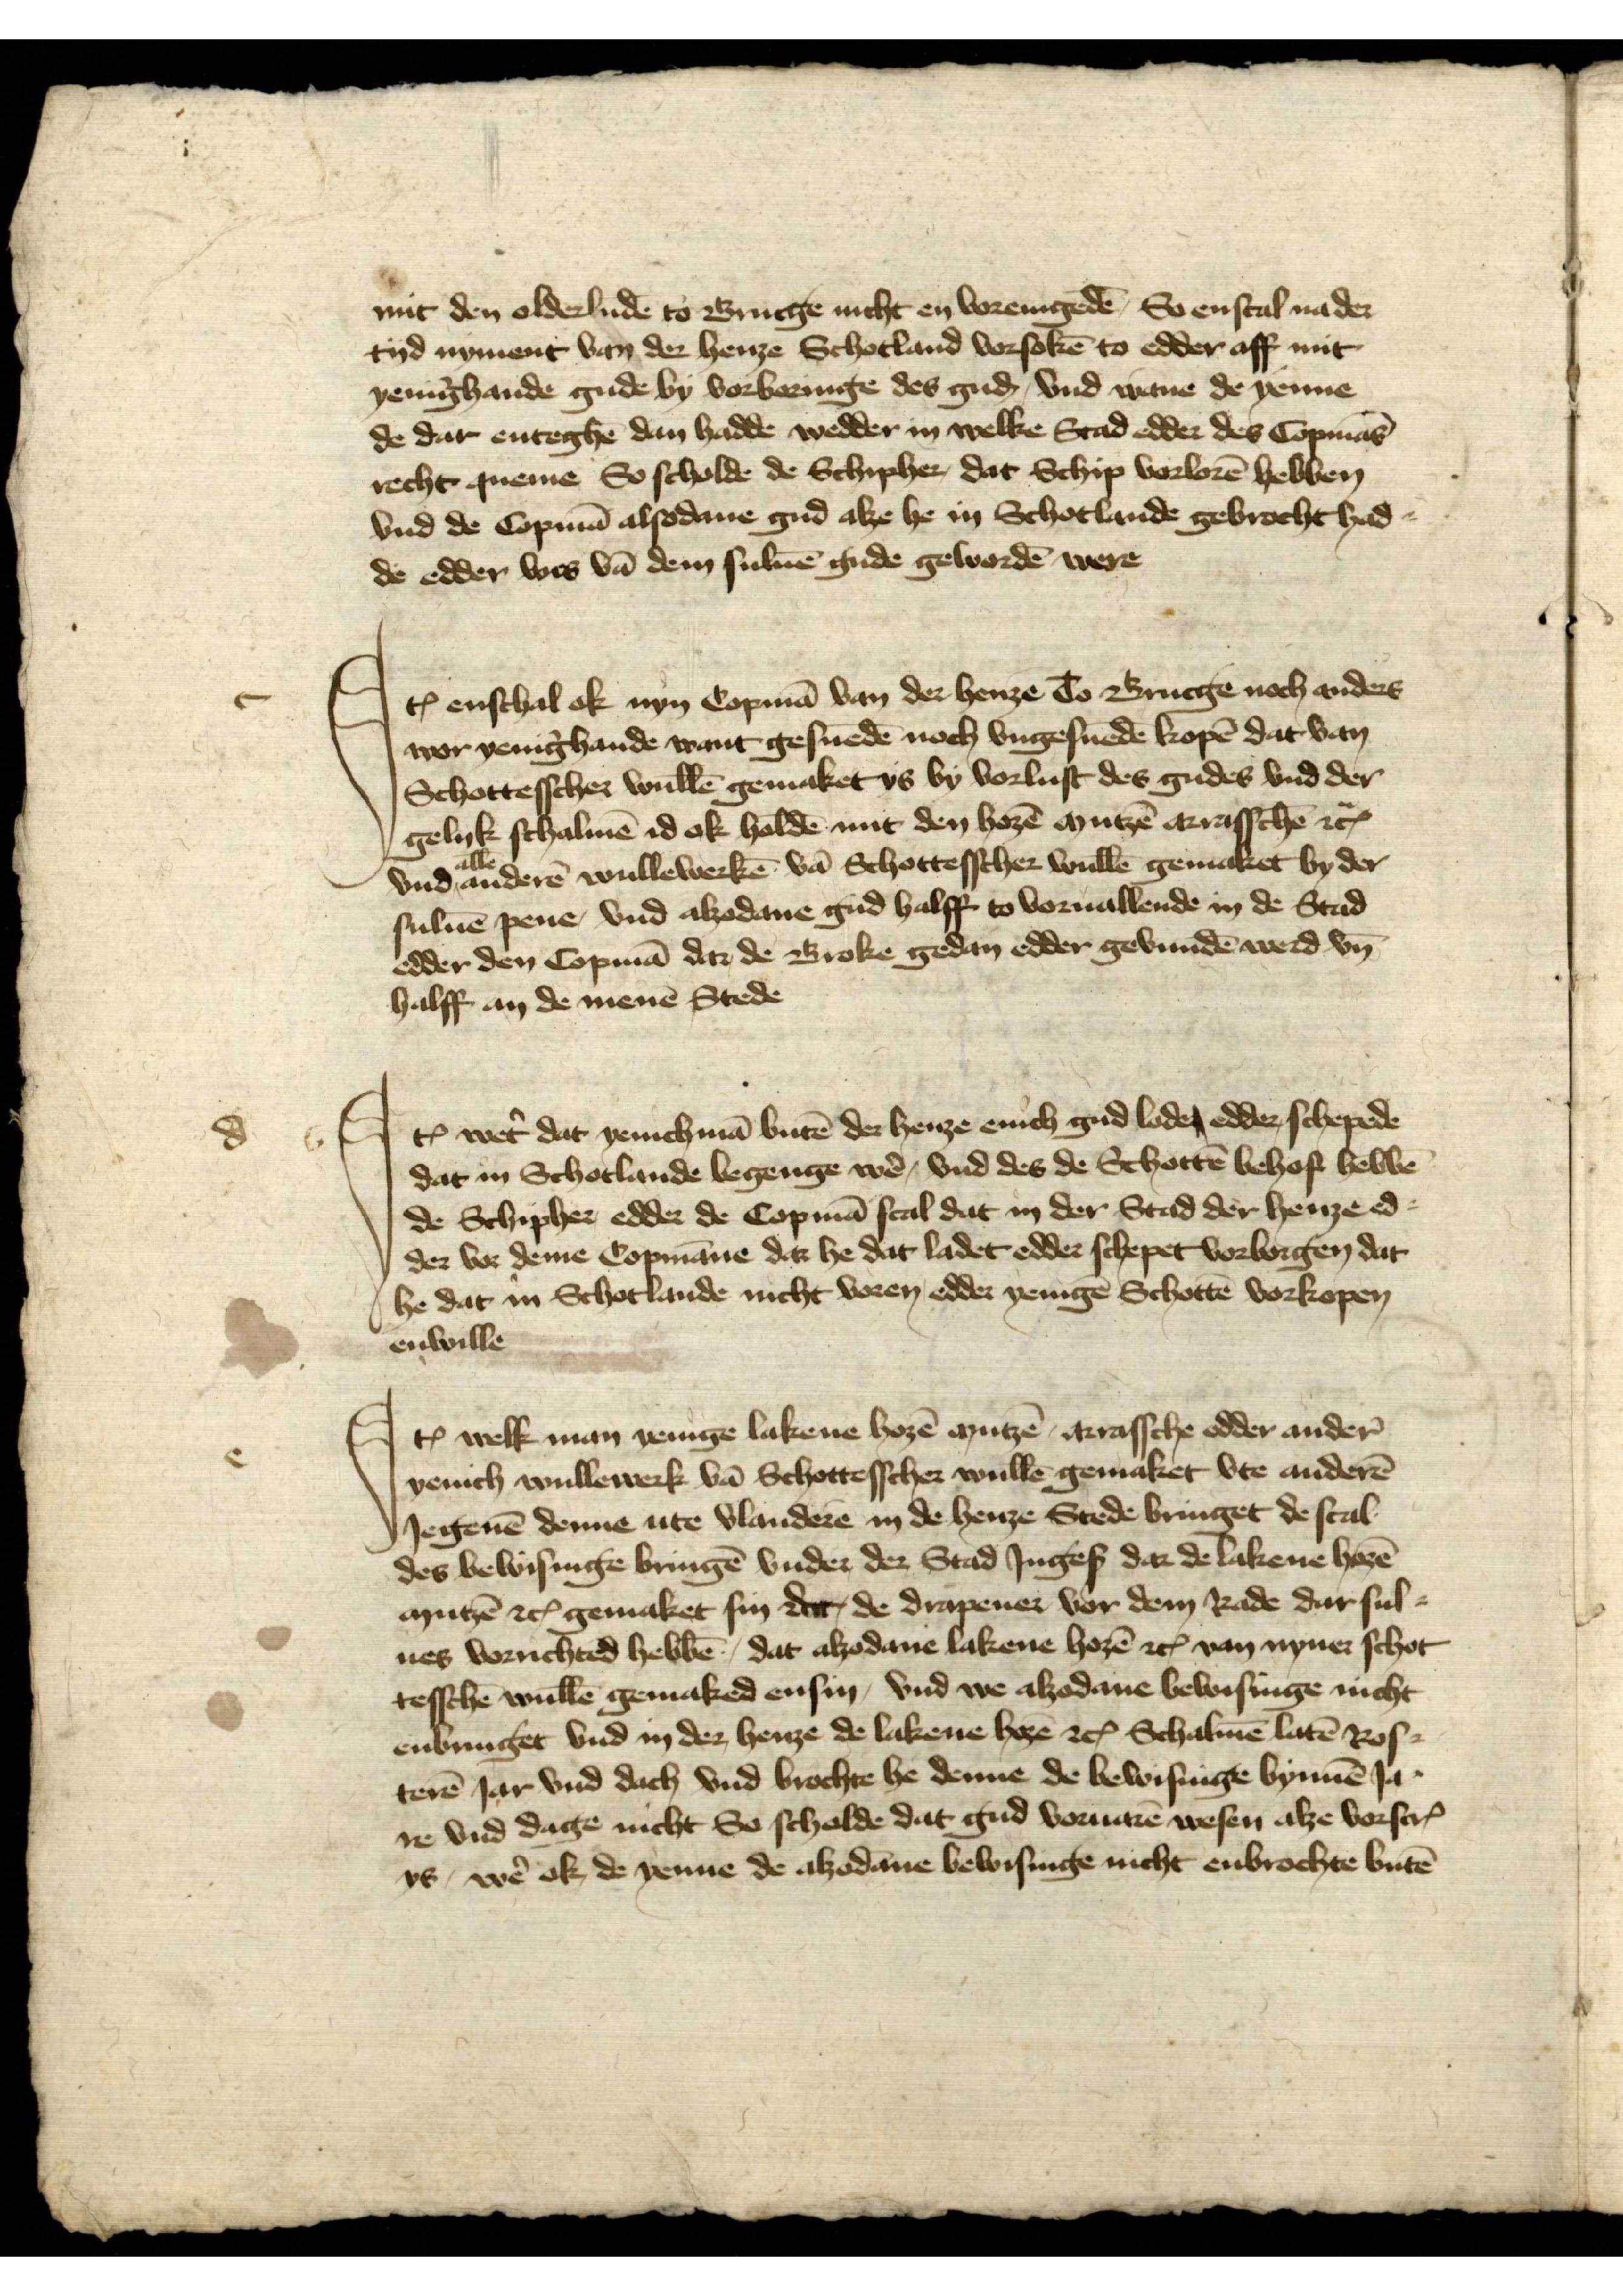 mit den olderludē to Brucge nicht en voreinigedē / So enscal na der
tijd nyment van der henze Schotland vorsokē to edder aff mit
yenig̉hande gude by vorboringe des gud̉ / vnd wane de yenne
de dar enteghē dan hadde wedder in welke Stad edder des Copmās̉
recht queme So scholde de Schipher dat Schip vorlorē hebben
vnd de Copmā alsodane gud alze he in Schotlande gebrocht had⸗
de edder wes vā dem suluē gude gewordē were
c
Itē enschal ok nyn Copmā van der henze To Brucge noch anders
wor yenig̉hande want gesnedē noch vngesnedē kopē dat van
Schottesscher wullē gemaket ys by vorlust des gudes vnd der
gelijk schalmē id ok holdē mit den hozē mutzē arrasschē ⁊cꝭ
alle
vnd anderē wullewerkē vā Schottesscher wullē gemaket by der
suluē pene / vnd alzodane gud halff to voruallende in de Stad
edder den Copmā dar de Broke gedan edder gevundē werd vn̄
halff an de menē Stede
d
Itē wer̉t dat yenichmā butē der henze enich gud lode edder schepede
dat in Schotlande begenge wer̉ / vnd des de Schottē behoff hebbē
de Schipher edder de Copmā scal dat in der Stad der henze ed⸗
der vor deme Copmāne dar he dat ladet edder schepet vorborgen dat
he dat in Schotlande nicht voren edder yenigē Schottē vorkopen
enwille
e
Itē welk man yenige lakene hozē mutzē / arrassche edder ander̉
yenich wullewerk vā Schottesscher wullē gemaket vte anderē
Jegenē denne ute vlanderē in de henze Stede bringet de scal
des bewisinge bringē vnder der Stad Ingeß dar de lakene hozē
mutzē ⁊cꝭ gemaket sin dat / de drapener vor dem Rade dar sul⸗
ues vorrichted hebbē / dat alzodane lakene hozē ⁊cꝭ van nyner schot
tesschē wullē gemaked ensin / vnd we alzodane bewisinge nicht
enbringet vnd in der henze de lakene hozē ⁊cꝭ Schalmē latē Ros⸗
terē Jar vnd dach vnd brochte he denne de bewisinge bynnē Ja⸗
re vnd dage nicht So scholde dat gud voruarē wesen alze vorscrꝭ
ys / wer̉ ok de yenne de alzodāne bewisinge nicht enbrochte butē